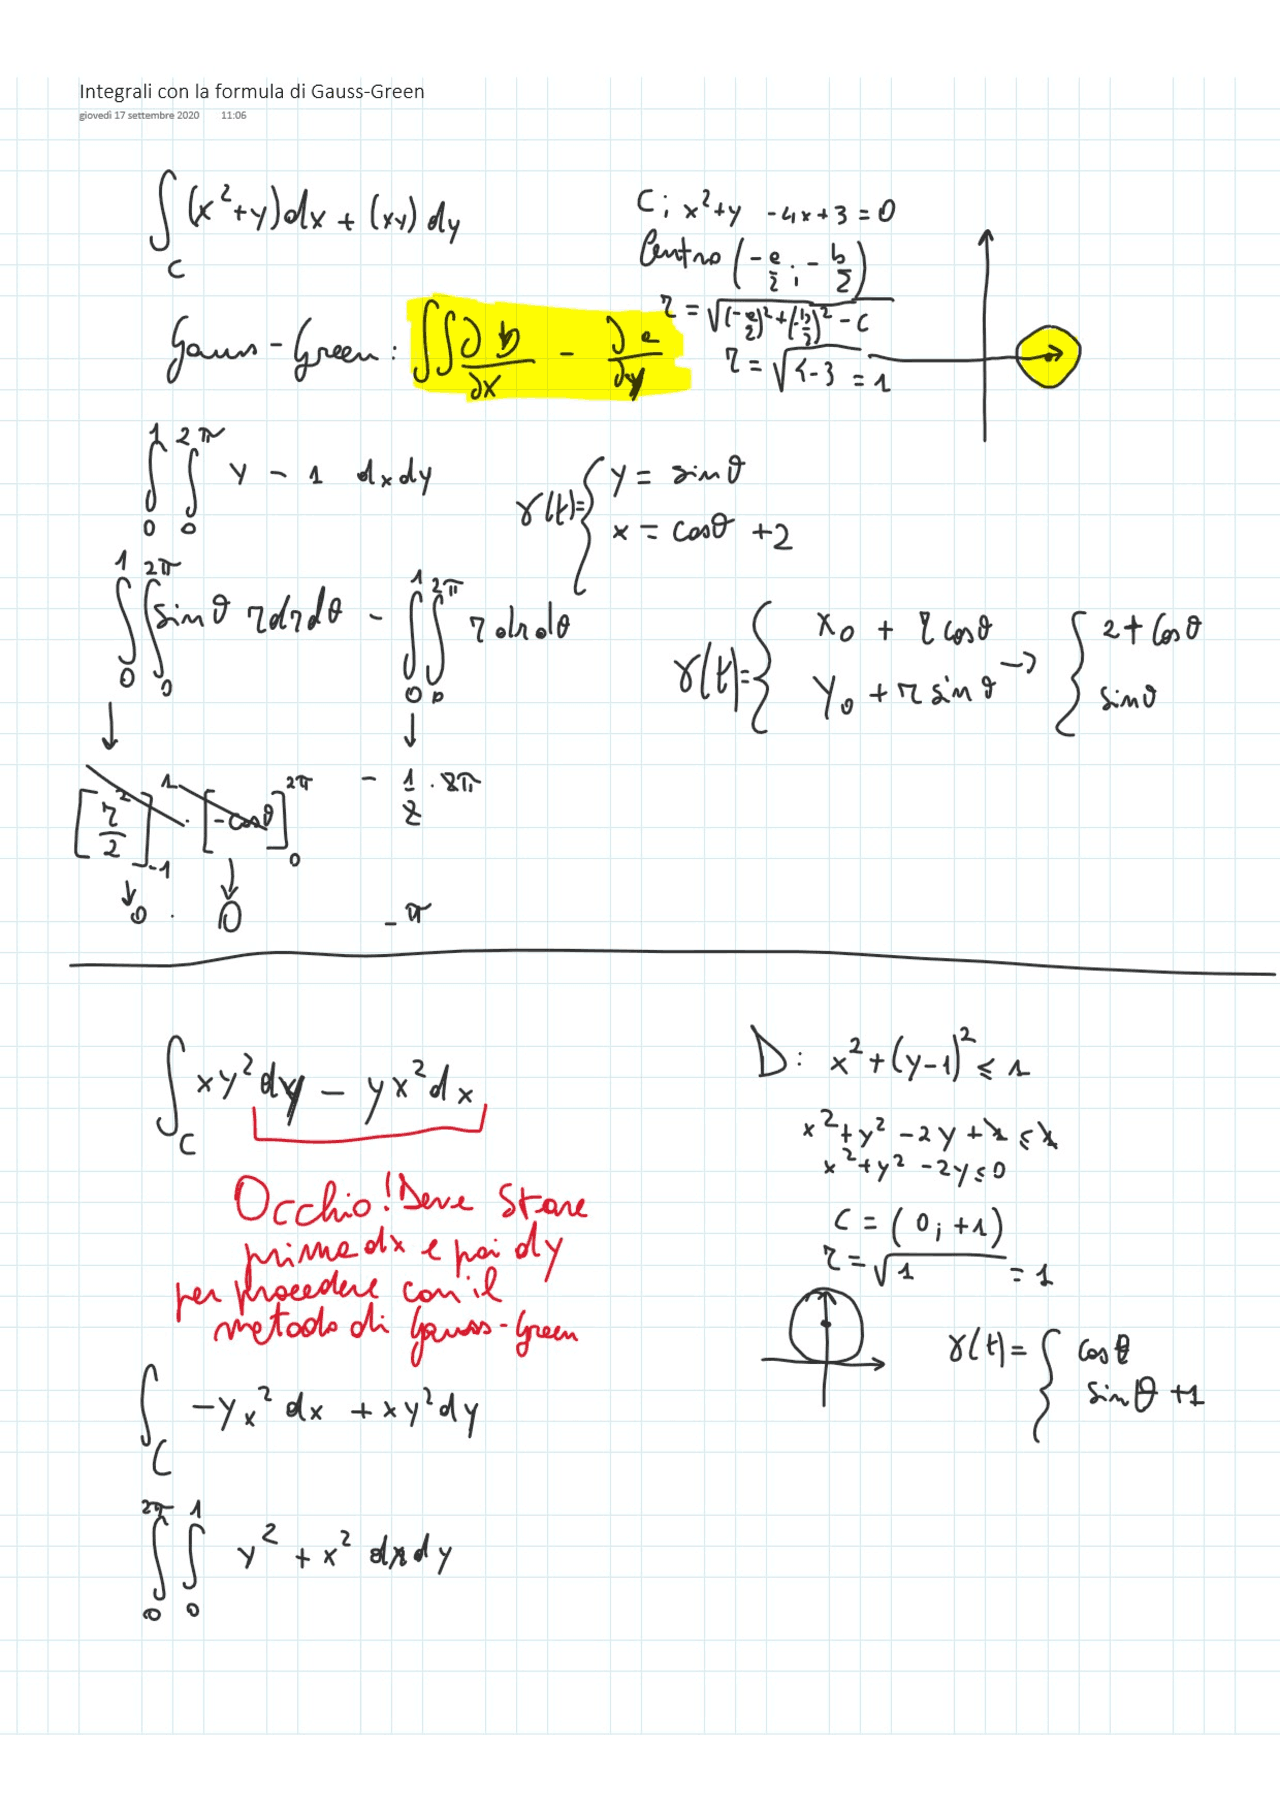 Integrali con la formula di Gauss-Green
giovedì 17 settembre 2020 11:06
∫_C (x²+y)dx + (xy) dy
C: x²+y -4x+3=0
Centro (-a/2 ; -b/2)
r = √((-a/2)²+(-b/2)² - c)
r = √(4-3) = 1
Gauss-Green: ∫∫ ∂b/∂x - ∂a/∂y
∫₀¹ ∫₀^2π y - 1 dxdy
γ(t)= { y = sinθ
x = cosθ +2
∫₀¹ ∫₀^2π sinθ r dr dθ - ∫₀¹ ∫₀^2π r dr dθ
γ(t)= { x₀ + r cosθ
y₀ + r sinθ → { 2+cosθ
sinθ
↓ ↓
[r²/2]₋₁¹ · [-cosθ]₀^2π - 1/2 · 2π
↓ ↓
0 · 0 -π
∫_C xy²dy - yx²dx
D: x²+(y-1)² ≤ 1
x²+y² -2y +1 ≤ 1
x²+y² -2y ≤ 0
C = (0; +1)
r = √1 = 1
Occhio! Deve stare
prima dx e poi dy
per procedere con il
metodo di Gauss-Green
γ(t)= { cosθ
sinθ +1
∫_C -yx² dx + xy²dy
∫₀^2π ∫₀¹ y² + x² dxdy